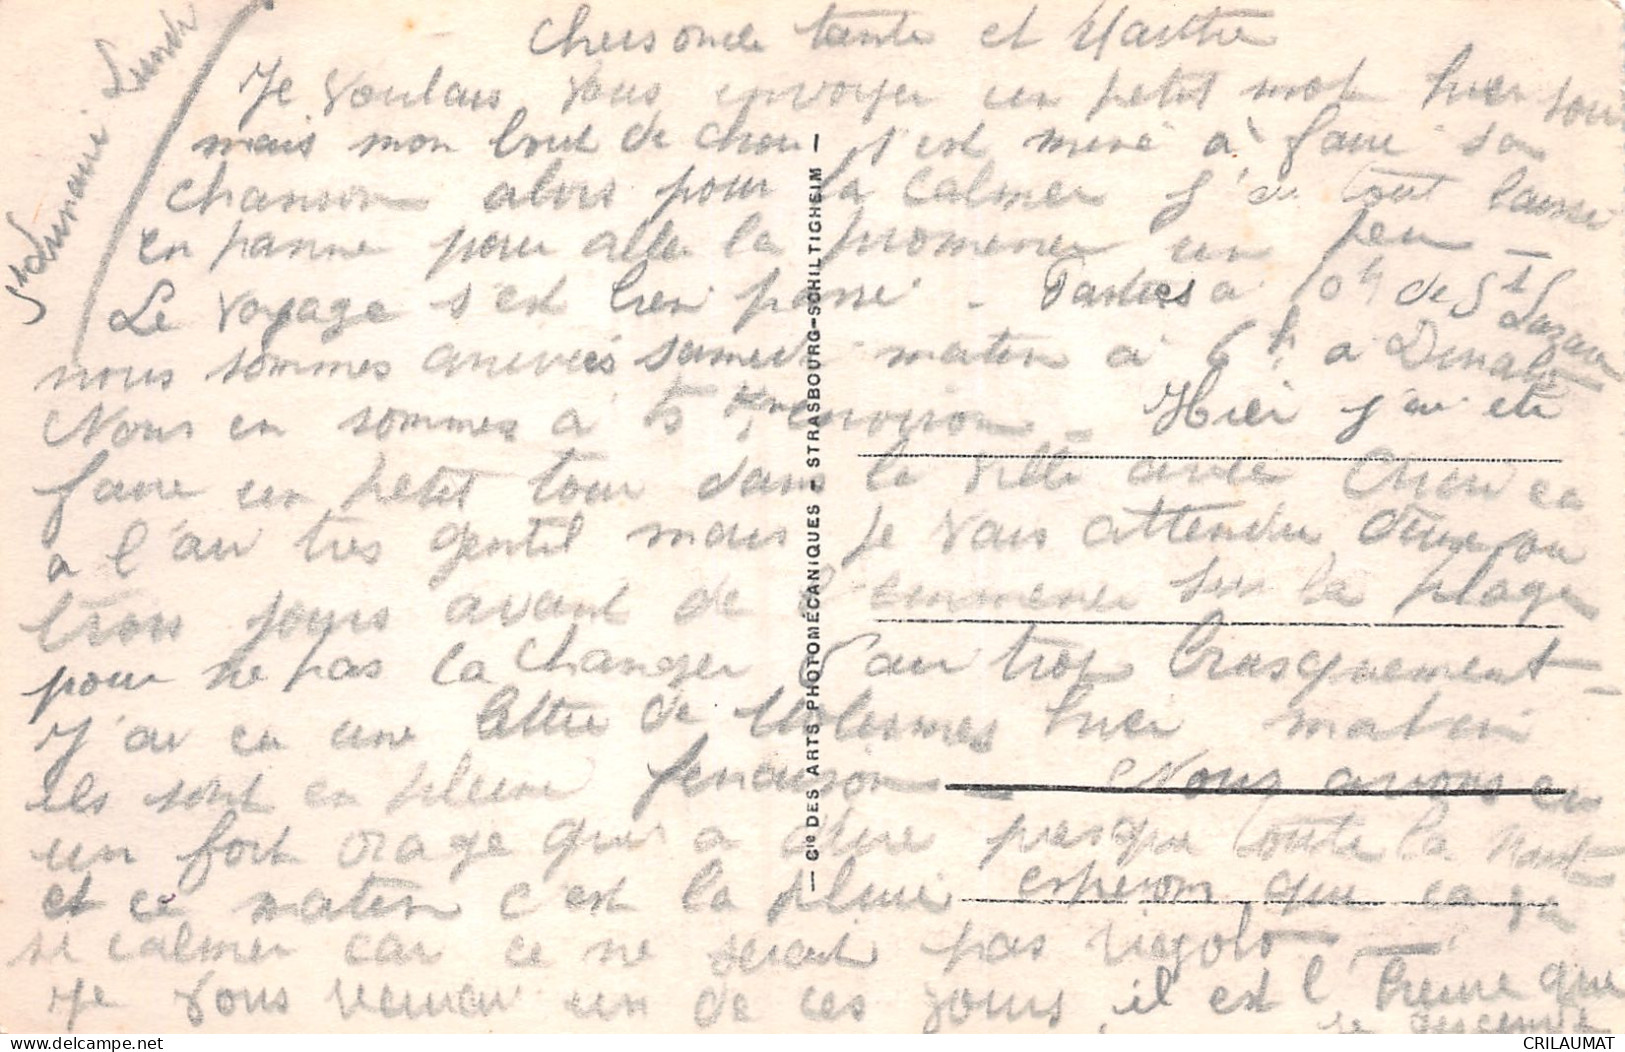 St Lunaire Lundi
Chers oncle tante et Marthe
Je voulais vous envoyer un petit mot hier soir
mais mon bout de chou s'est mise à faire sa
chanson alors pour la calmer j'ai tout laissé
en panne pour aller la promener un peu -
Le voyage s'est bien passé - Parties à 10h de St Lazare
nous sommes arrivées samedi matin à 6h à Dinard
Nous en sommes à 5 Km environ - Hier j'ai été
faire un petit tour dans la ville avec ça
a l'air très gentil mais je vais attendre deux ou
trois jours avant de l'emmener sur la plage
pour ne pas la changer d'air trop brusquement -
J'ai eu une lettre de hier matin
ils sont en pleine fenaison - Nous avons eu
un fort orage qui a duré presque toute la nuit
et ce matin c'est la pluie espérons que ça va
se calmer car ce ne serait pas rigolo -
Je vous un de ces jours, il est l'heure que
je descende
— Cie DES ARTS PHOTOMÉCANIQUES - STRASBOURG-SCHILTIGHEIM —
CRILAUMAT